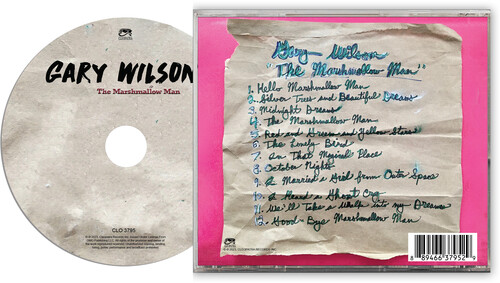 GARY WILSON
The Marshmallow Man
CLO 3795
Gary Wilson
"The Marshmallow Man"
1. Hello Marshmallow Man
2. Silver Trees and Beautiful Dreams
3. Midnight Dreams
4. The Marshmallow Man
5. Red and Green and Yellow Stars
6. The Lonely Bird
7. In That Magical Place
8. October Nights
9. I Married a Girl from Outer Space
10. I Heard a Ghost Cry
11. We'll Take a Walk into my Dreams
12. Good-Bye Marshmallow Man
8 89466 37952 9